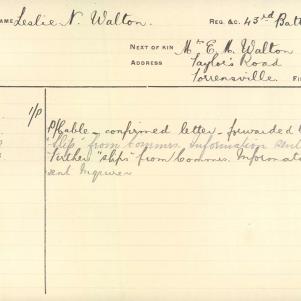 NAME Leslie N. Walton. REG. &C. 43rd Batt
NEXT OF KIN Mrs E. M. Walton
ADDRESS Taylor's Road
Torrensville.
1/P P/Cable - confirmed letter - forwarded
"Slip" from Commrs. Information sent
Further "slips" from Commrs. Informat
sent Inquirer